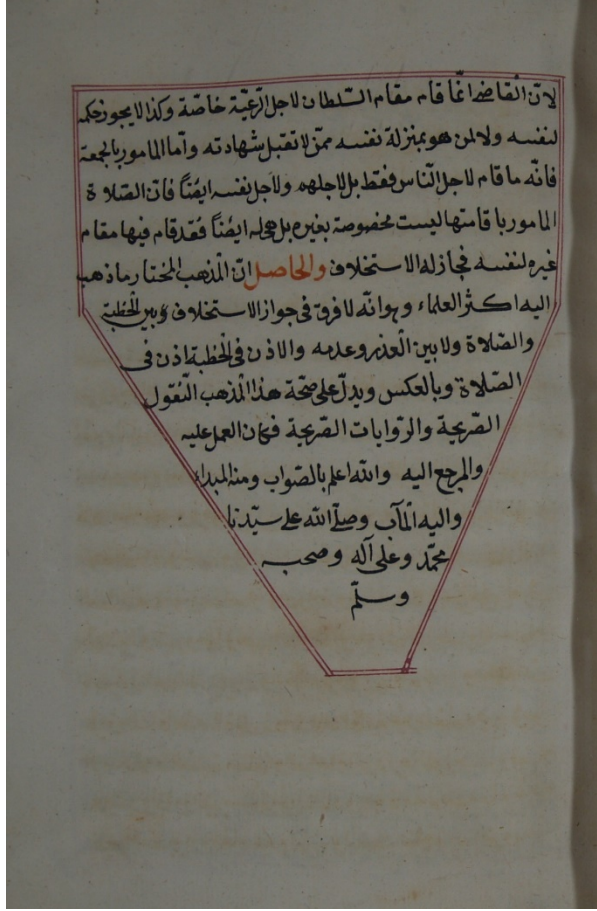 لانّ القاضى انّما قام مقام السّلطان لاجل الرّعيّة خاصّة وكذا لا يجوز حكمه
لنفسه ولا لمن هو بمنزلة نفسه ممّن لا تقبل شهادته وامّا المامور بالجمعة
فانّه ما قام لاجل النّاس فقط بل لاجلهم ولاجل نفسه ايضاً فانّ الصّلاة
المامور باقامتها ليست مخصوصة بغيره بل هى له ايضاً فقد قام فيها مقام
غيره لنفسه فجاز له الاستخلاف والحاصل انّ المذهب المختار ما ذهب
اليه اكثر العلماء وهو انّه لا فرق فى جواز الاستخلاف وبين الخطبة
والصّلاة ولا بين العذر وعدمه والاذن فى الخطبة اذن فى
الصّلاة وبالعكس ويدلّ على صحّة هذا المذهب النّقول
الصّريحة والرّوايات الصّريحة فكان العمل عليه
والمرجع اليه والله اعلم بالصّواب ومنه المبداء
واليه المآب وصلّى الله على سيّدنا
محمّد وعلى آله وصحبه
وسلّم